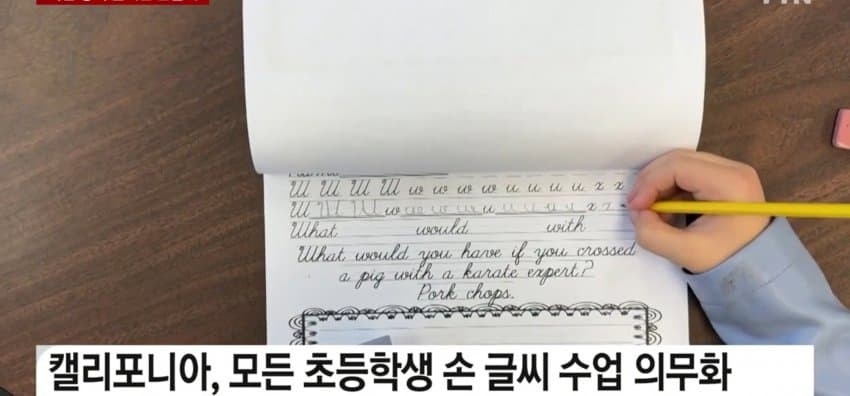 W W W W w w w w u u u u x x
W W W w w w w u u u u u x x
What would with
What would you have if you crossed
a pig with a karate expert?
Pork chops.
캘리포니아, 모든 초등학생 손 글씨 수업 의무화